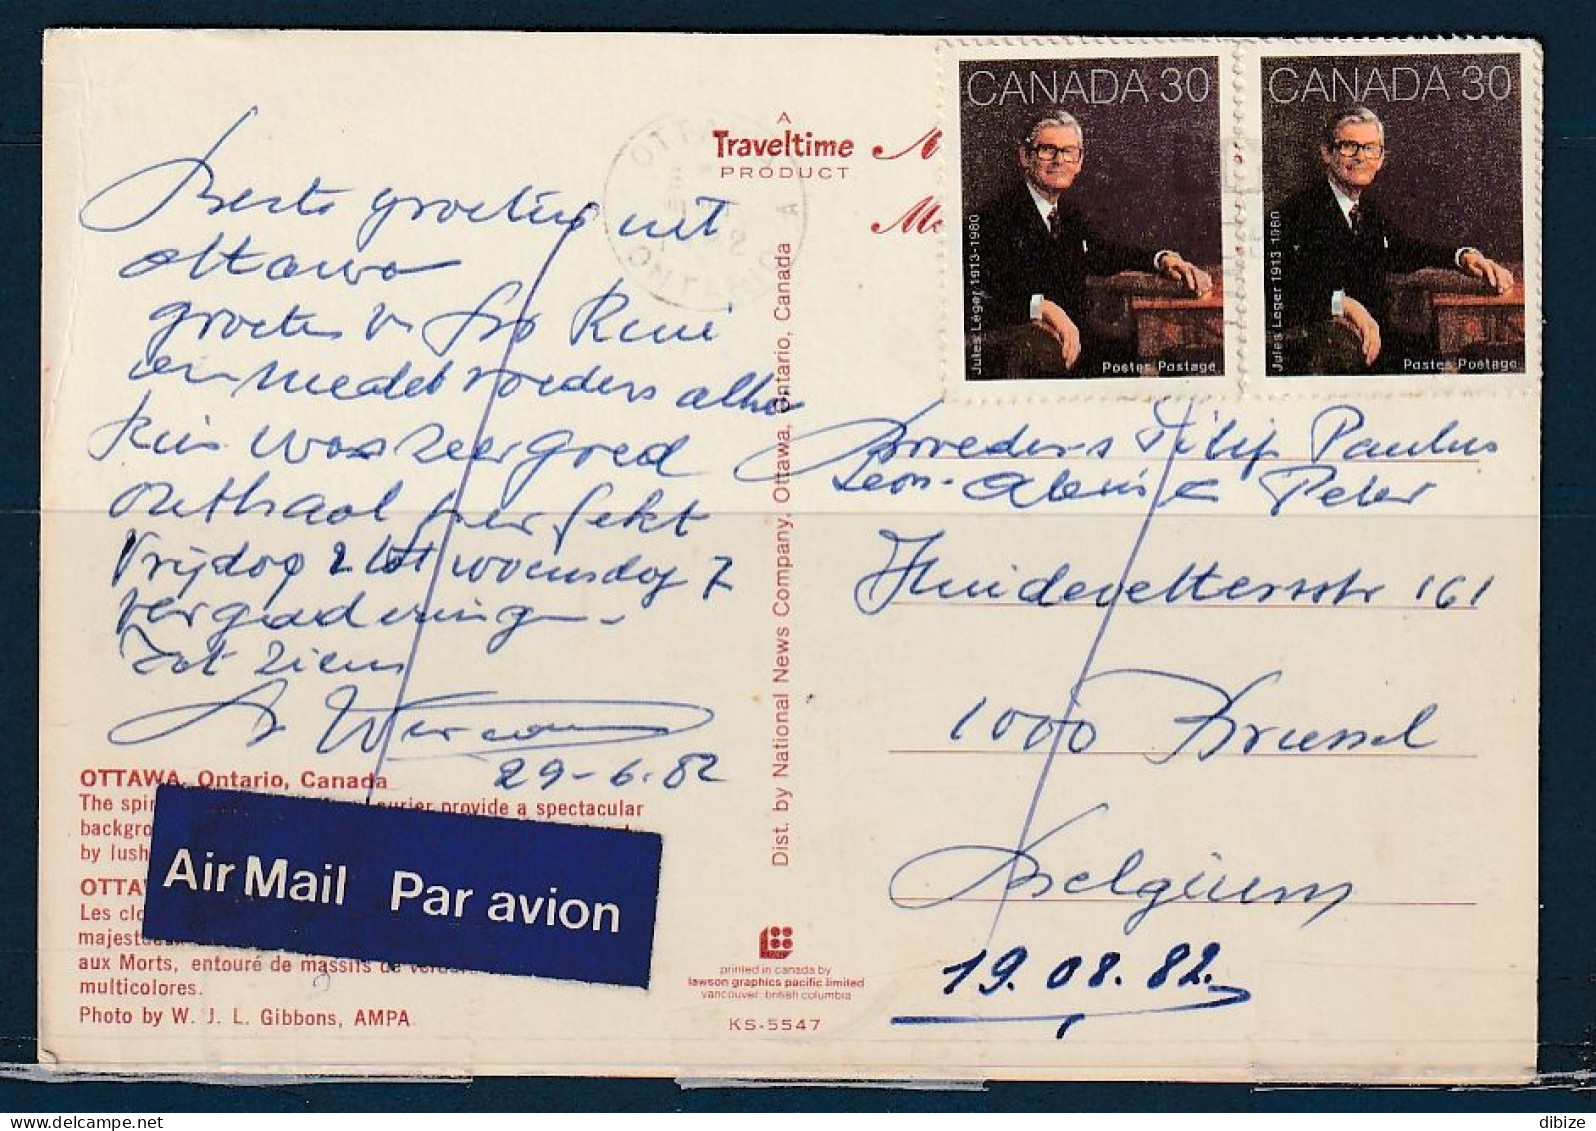 Beste groeten uit
ottawa
groeten v fro René
en Medebroeders alhier
Reis was zeer goed
onthaal perfekt
Vrijdag 2 tot woensdag 7
vergadering -
Tot ziens
29-6-82
A
Traveltime
PRODUCT
OTTAWA
ONTARIO
A
CANADA 30
Jules Léger 1913-1980
Postes Postage
CANADA 30
Jules Léger 1913-1980
Postes Postage
Broeders Filip Paulus
Leon-Alexis & Peter
Huidevettersstr 161
1000 Brussel
Belgium
19.08.82.
Dist. by National News Company, Ottawa, Ontario, Canada
OTTAWA, Ontario, Canada
The spir
urier provide a spectacular
backgro
by lush
Air Mail Par avion
OTTA
Les clo
majestueux
aux Morts, entouré de massifs de
multicolores.
Photo by W. J. L. Gibbons, AMPA
printed in canada by
lawson graphics pacific limited
vancouver british columbia
KS-5547
dibize